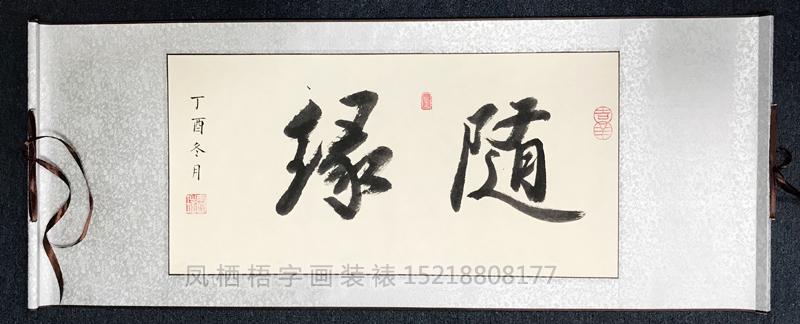 随缘
丁酉冬月
凤栖梧字画装裱 15218808177